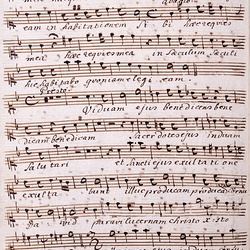 eam in habitationem Sibi haec requies
mea haec requies mea in Saeculum Saeculi
hic habitabo quoniam elegi eam
Viduam ejus benedicens bene
dicam benedicam Sacerdotes ejus induam
Salutari et Sancti ejus exultati one
exulta bunt illuc producam producam
David paravi lucernam Christo